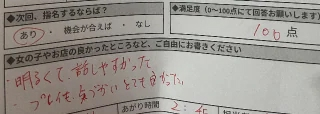 ◆次回、指名するならば？
あり ・ 機会が合えば ・ なし
◆満足度(0~100点にて回答お願いします)
100点
◆女の子やお店の良かったところなど、ご自由にお書きください
・明るくて話しやすかった
・プレイも気づかいとてもよかった。
あがり時間
2:45